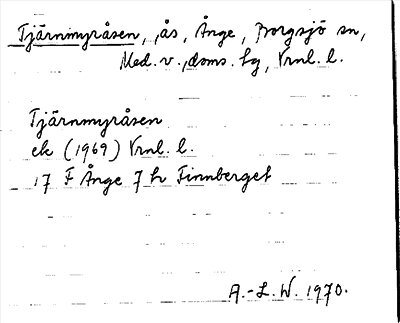 Tjärnmyråsen, ås, Ånge, Borgsjö sn,
Med. v., doms. hg, Vrnl. l.
Tjärnmyråsen
ek (1969) Vrnl. l.
17 F Ånge 7 h Finnberget
A.-L. W. 1970.